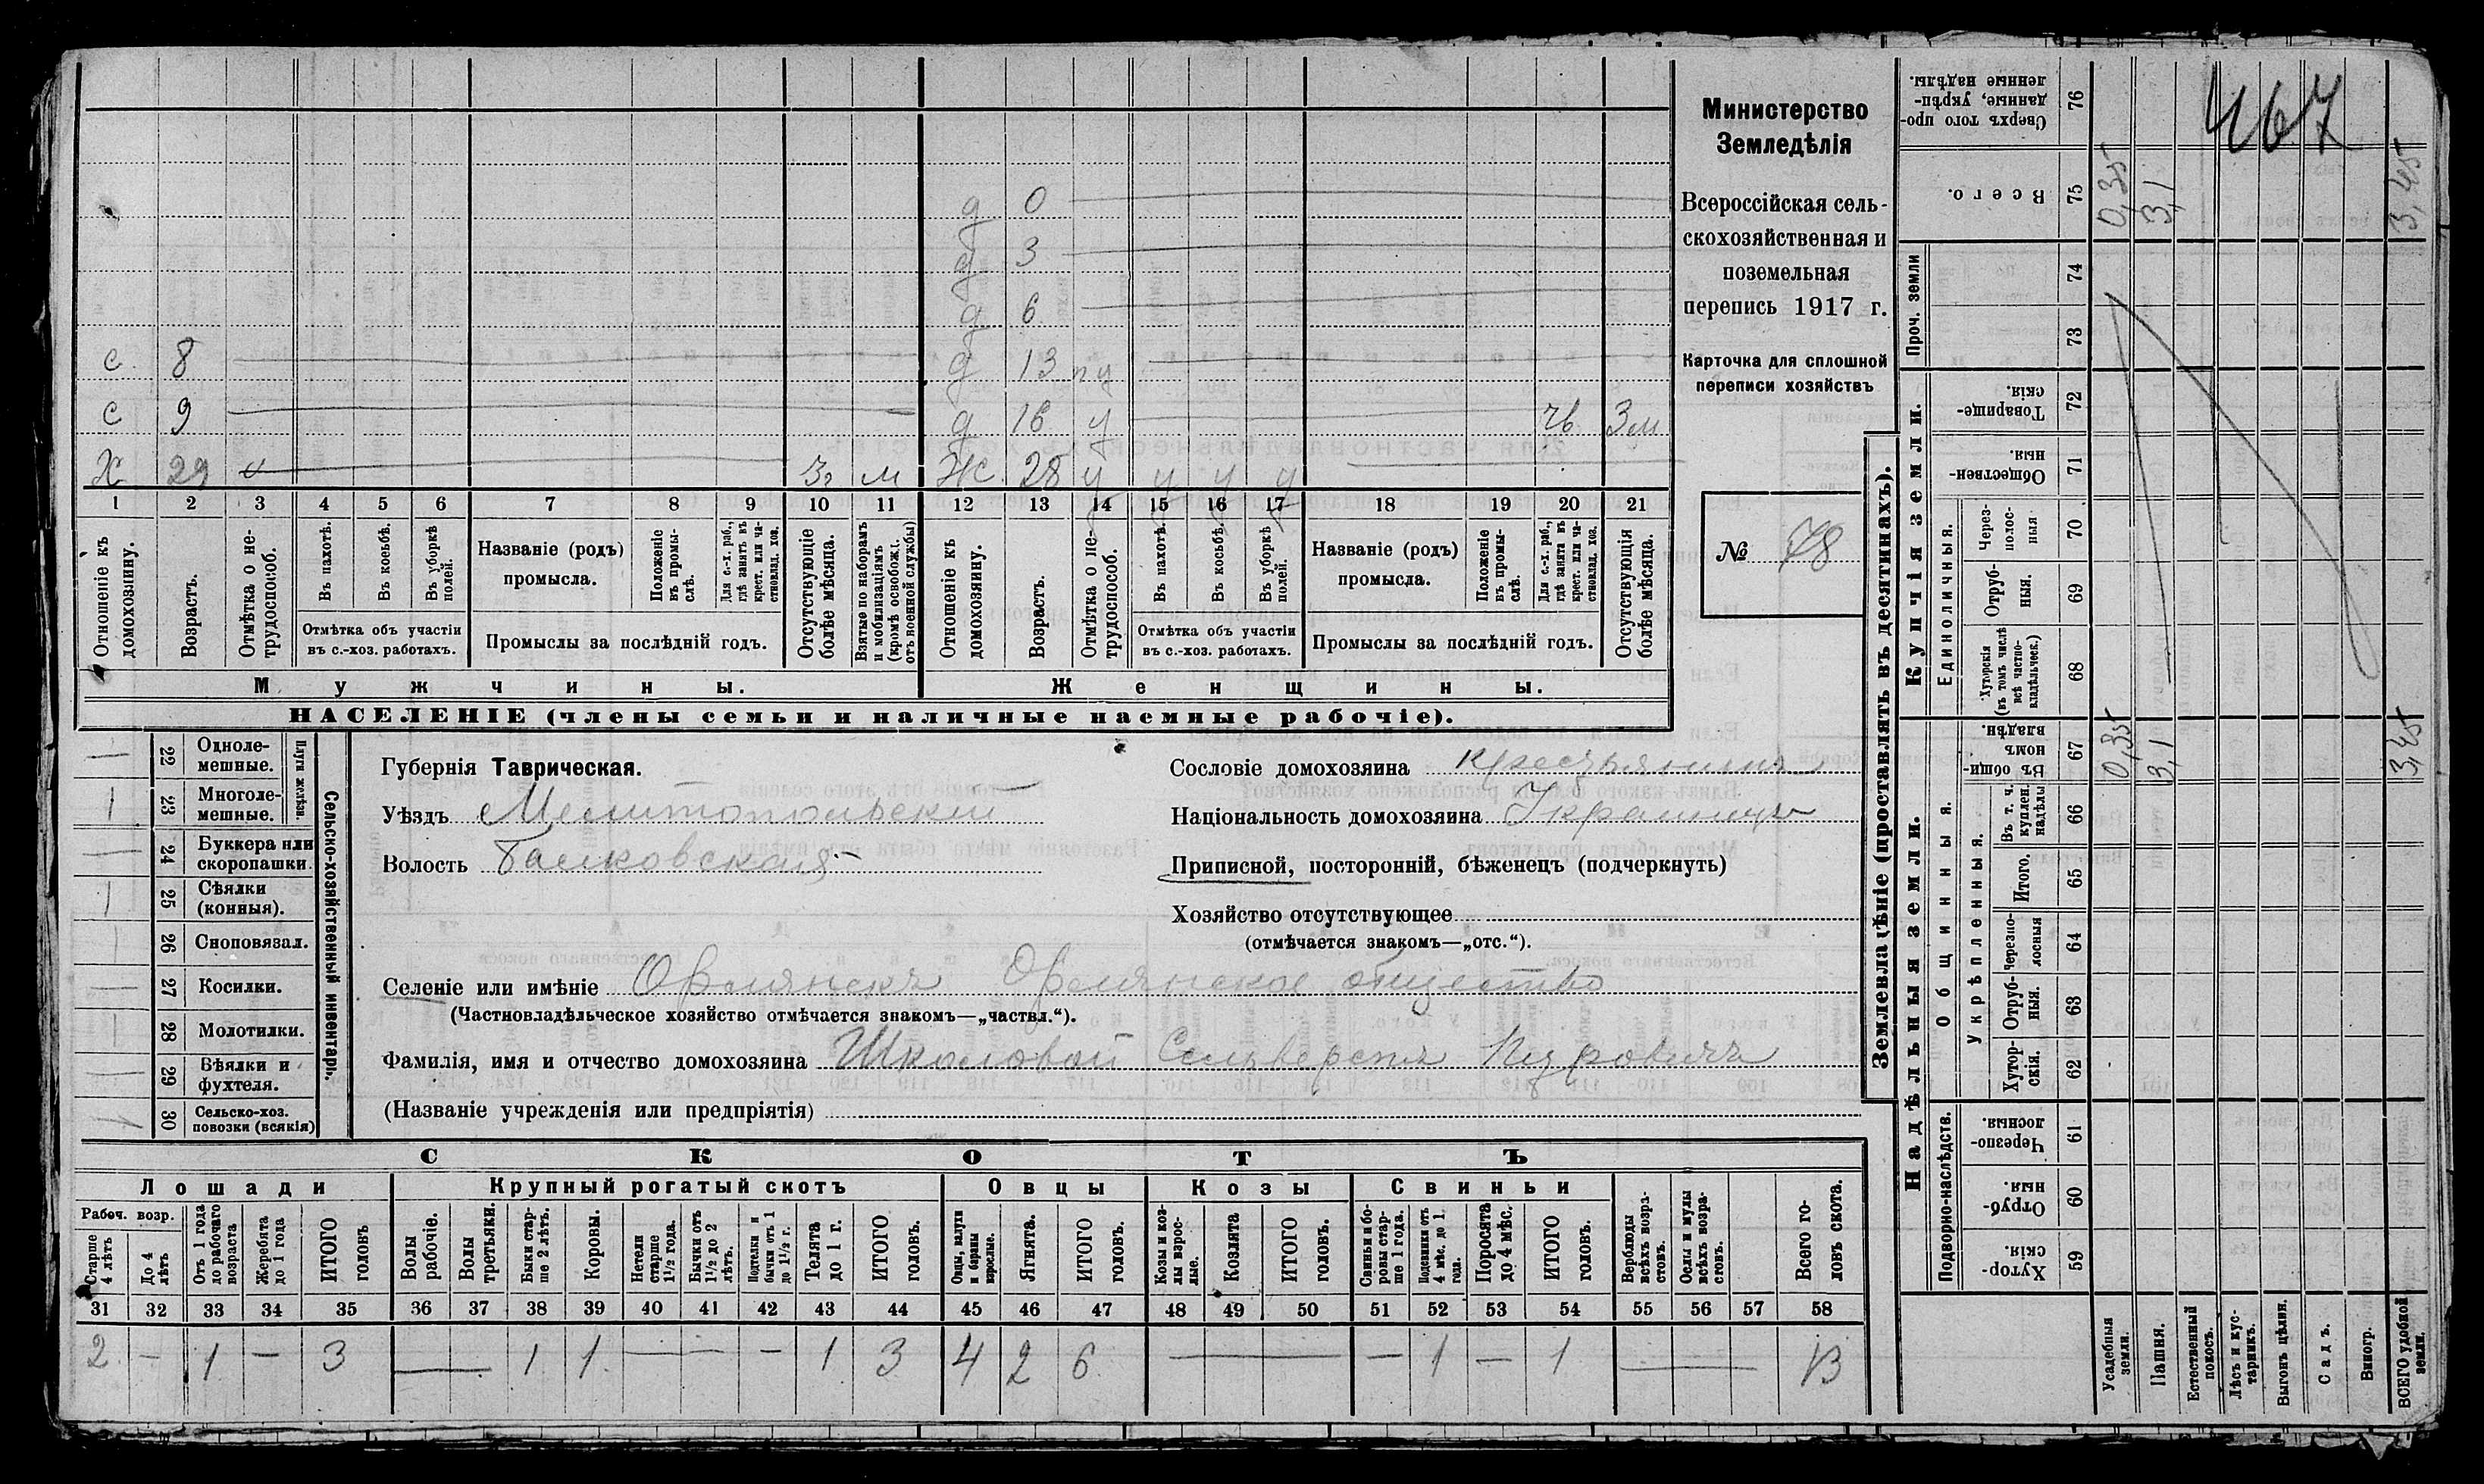 467
Министерство
Земледѣлія
Всероссійская сель-
скохозяйственная и
поземельная
перепись 1917 г.
Карточка для сплошной
переписи хозяйствъ
№ 78
д 0
д 3
д 6
с 8 д 13 пу
с 9 д 16 у 3м
Х 29 м Ж 28 у у у у
1 2 3 4 5 6 7 8 9 10 11 12 13 14 15 16 17 18 19 20 21
Отношеніе къ домохозяину.
Возрастъ.
Отмѣтка о не-трудоспособ.
Въ пахотѣ.
Въ косьбѣ.
Въ уборкѣ полей.
Отмѣтка объ участіи
въ с.-хоз. работахъ.
Названіе (родъ)
промысла.
Положеніе въ промы-слѣ.
Для с.-х. раб., гдѣ занятъ въ крест. или ча-стновлад. хоз.
Промыслы за послѣдній годъ.
Отсутствующіе болѣе мѣсяца.
Взятые по наборамъ и мобилизаціямъ (кромѣ освобожд. отъ военной службы)
Отношеніе къ домохозяину.
Возрастъ.
Отмѣтка о не-трудоспособ.
Въ пахотѣ.
Въ косьбѣ.
Въ уборкѣ полей.
Отмѣтка объ участіи
въ с.-хоз. работахъ.
Названіе (родъ)
промысла.
Положеніе въ промы-слѣ.
Для с.-х. раб., гдѣ заняты въ крест. или ча-стновлад. хоз.
Промыслы за послѣдній годъ.
Отсутствующія болѣе мѣсяца.
Мужчины.
Женщины.
НАСЕЛЕНІЕ (члены семьи и наличные наемные рабочіе).
Сельско-хозяйственный инвентарь.
Плуги желѣзн.
— 22 Одноле-мешные.
1 23 Многоле-мешные.
— 24 Буккера или скоропашки.
1 25 Сѣялки (конныя).
26 Сноповязал.
— 27 Косилки.
28 Молотилки.
29 Вѣялки и фухтеля.
1 30 Сельско-хоз. повозки (всякія)
Губернія Таврическая.
Уѣздъ Мелитопольскій
Волость Балковская
Сословіе домохозяина крестьянинъ
Національность домохозяина Украинецъ
Приписной, посторонній, бѣженецъ (подчеркнуть)
Хозяйство отсутствующее
(отмѣчается знакомъ—„отс.“).
Селеніе или имѣніе Орлянскъ Орлянское общество
(Частновладѣльческое хозяйство отмѣчается знакомъ—„частвл.“).
Фамилія, имя и отчество домохозяина Школовой Сельверстъ
(Названіе учрежденія или предпріятія)
СКОТЪ
Лошади
Рабоч. возр.
Старше 4 лѣтъ
До 4 лѣтъ
Отъ 1 года до рабочаго возраста
Жеребята до 1 года
ИТОГО головъ
Крупный рогатый скотъ
Волы рабочіе.
Волы третьяки.
Быки стар-ше 2 лѣтъ.
Коровы.
Нетели старше 1½ года.
Бычки отъ 1½ до 2 лѣтъ.
Подтелки и бычки отъ 1 до 1½ г.
Телята до 1 г.
ИТОГО головъ.
Овцы
Овцы, валухи и бараны взрослые.
Ягнята.
ИТОГО головъ.
Козы
Козы и коз-лы взрос-лые.
Козлята
ИТОГО головъ.
Свиньи
Свиньи и бо-ровы стар-ше 1 года.
Подсвинки отъ 4 мѣс. до 1 года.
Поросята до 4 мѣс.
ИТОГО головъ.
Верблюды всѣхъ возра-стовъ.
Ослы и мулы всѣхъ возра-стовъ.
Всего го-ловъ скота.
31 32 33 34 35 36 37 38 39 40 41 42 43 44 45 46 47 48 49 50 51 52 53 54 55 56 57 58
2 — 1 — 3 — 1 1 — — — 1 3 4 2 6 — — 1 — 1 — 13
Землевладѣніе (проставлять въ десятинахъ).
Надѣльныя земли.
Купчія земли.
Проч. земли
Подворно-наслѣдств.
Общинныя.
Укрѣпленныя.
Единоличныя.
76 Сверхъ того про-данные, укрѣп-ленные надѣлы.
75 Всего. 0,35 3,1 3,45
74
73
72 Товарище-скія.
71 Обществен-ныя.
70 Через-полос-ныя
69 Отруб-ныя.
68 Хуторскія (въ томъ числѣ всѣ частно-владѣльческ.)
67 Въ общин-номъ владѣн. 0,35 3,1 3,45
66 Въ т. ч. куплен. надѣлы
65 Итого.
64 Черезпо-лосныя
63 Отруб-ныя.
62 Хутор-скія.
61 Черезпо-лосныя.
60 Отруб-ныя.
59 Хутор-скія.
Усадебныя земли.
Пашня.
Естественный покосъ.
Лѣсъ и кус-тарникъ.
Выгонъ цѣлин.
Садъ.
Виногр.
ВСЕГО удобной земли.